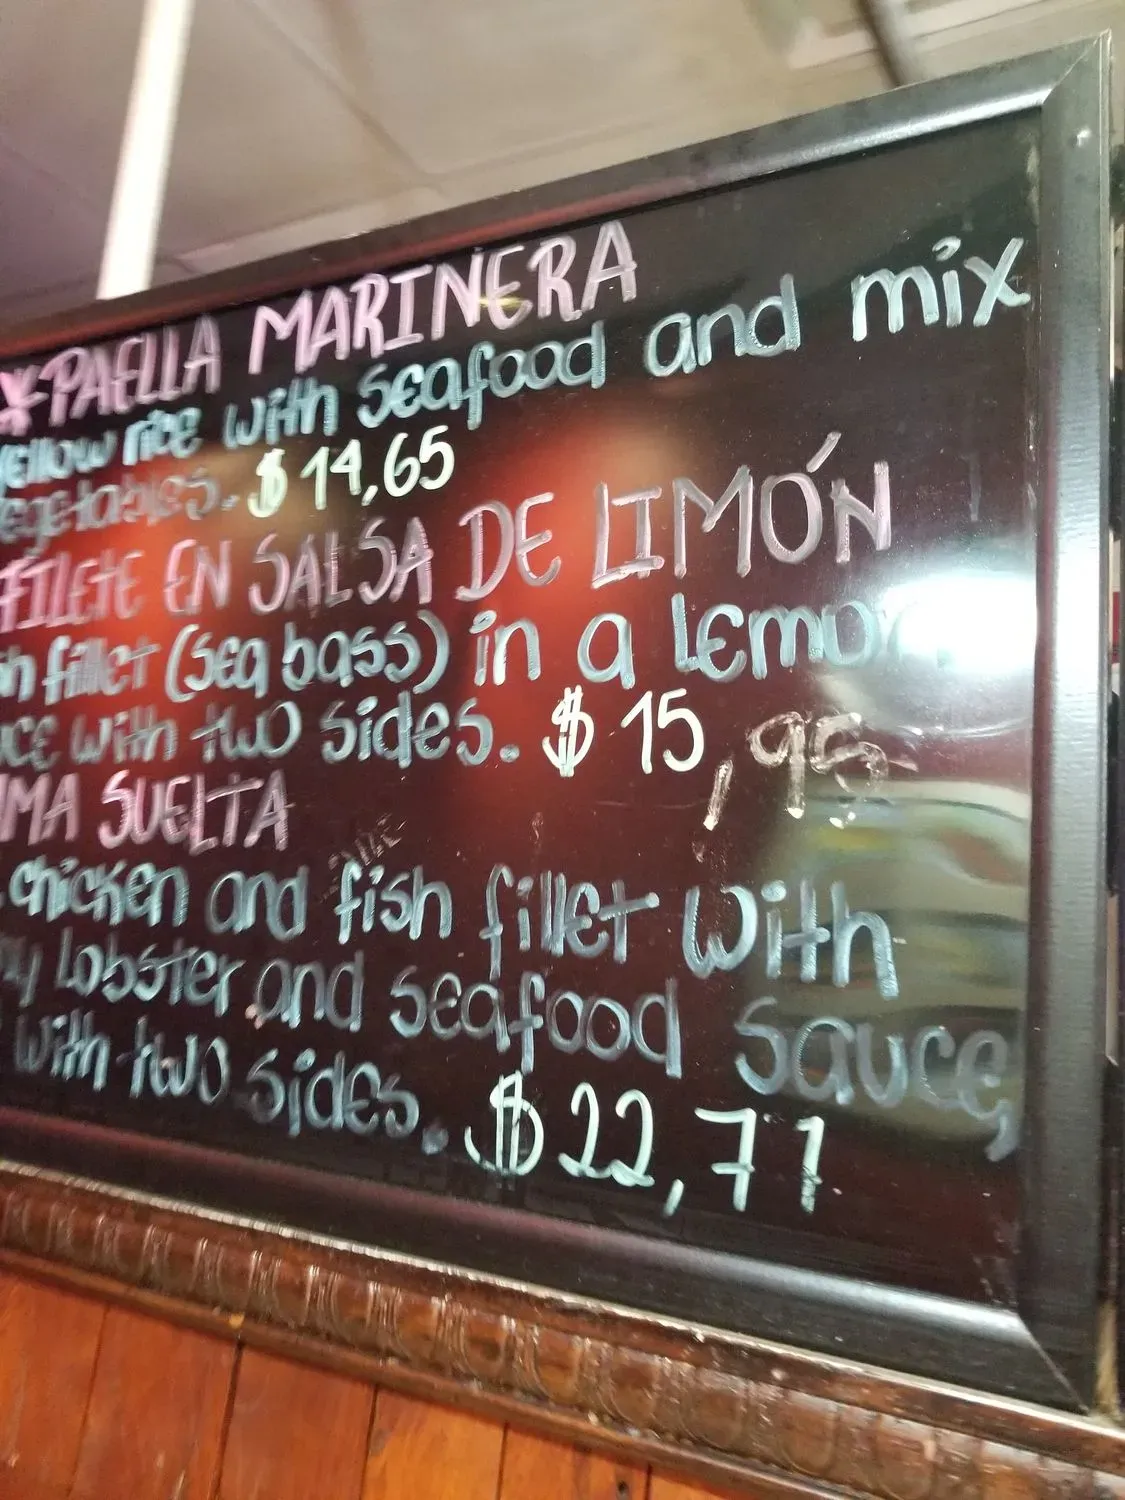 *PAELLA MARINERA
Yellow rice with seafood and mix
vegetables. $14,65
FILETE EN SALSA DE LIMÓN
fillet (sea bass) in a Lemon
with two sides. $15,95
SUELTA
chicken and fish fillet with
Lobster and seafood sauce,
with two sides. $22,71